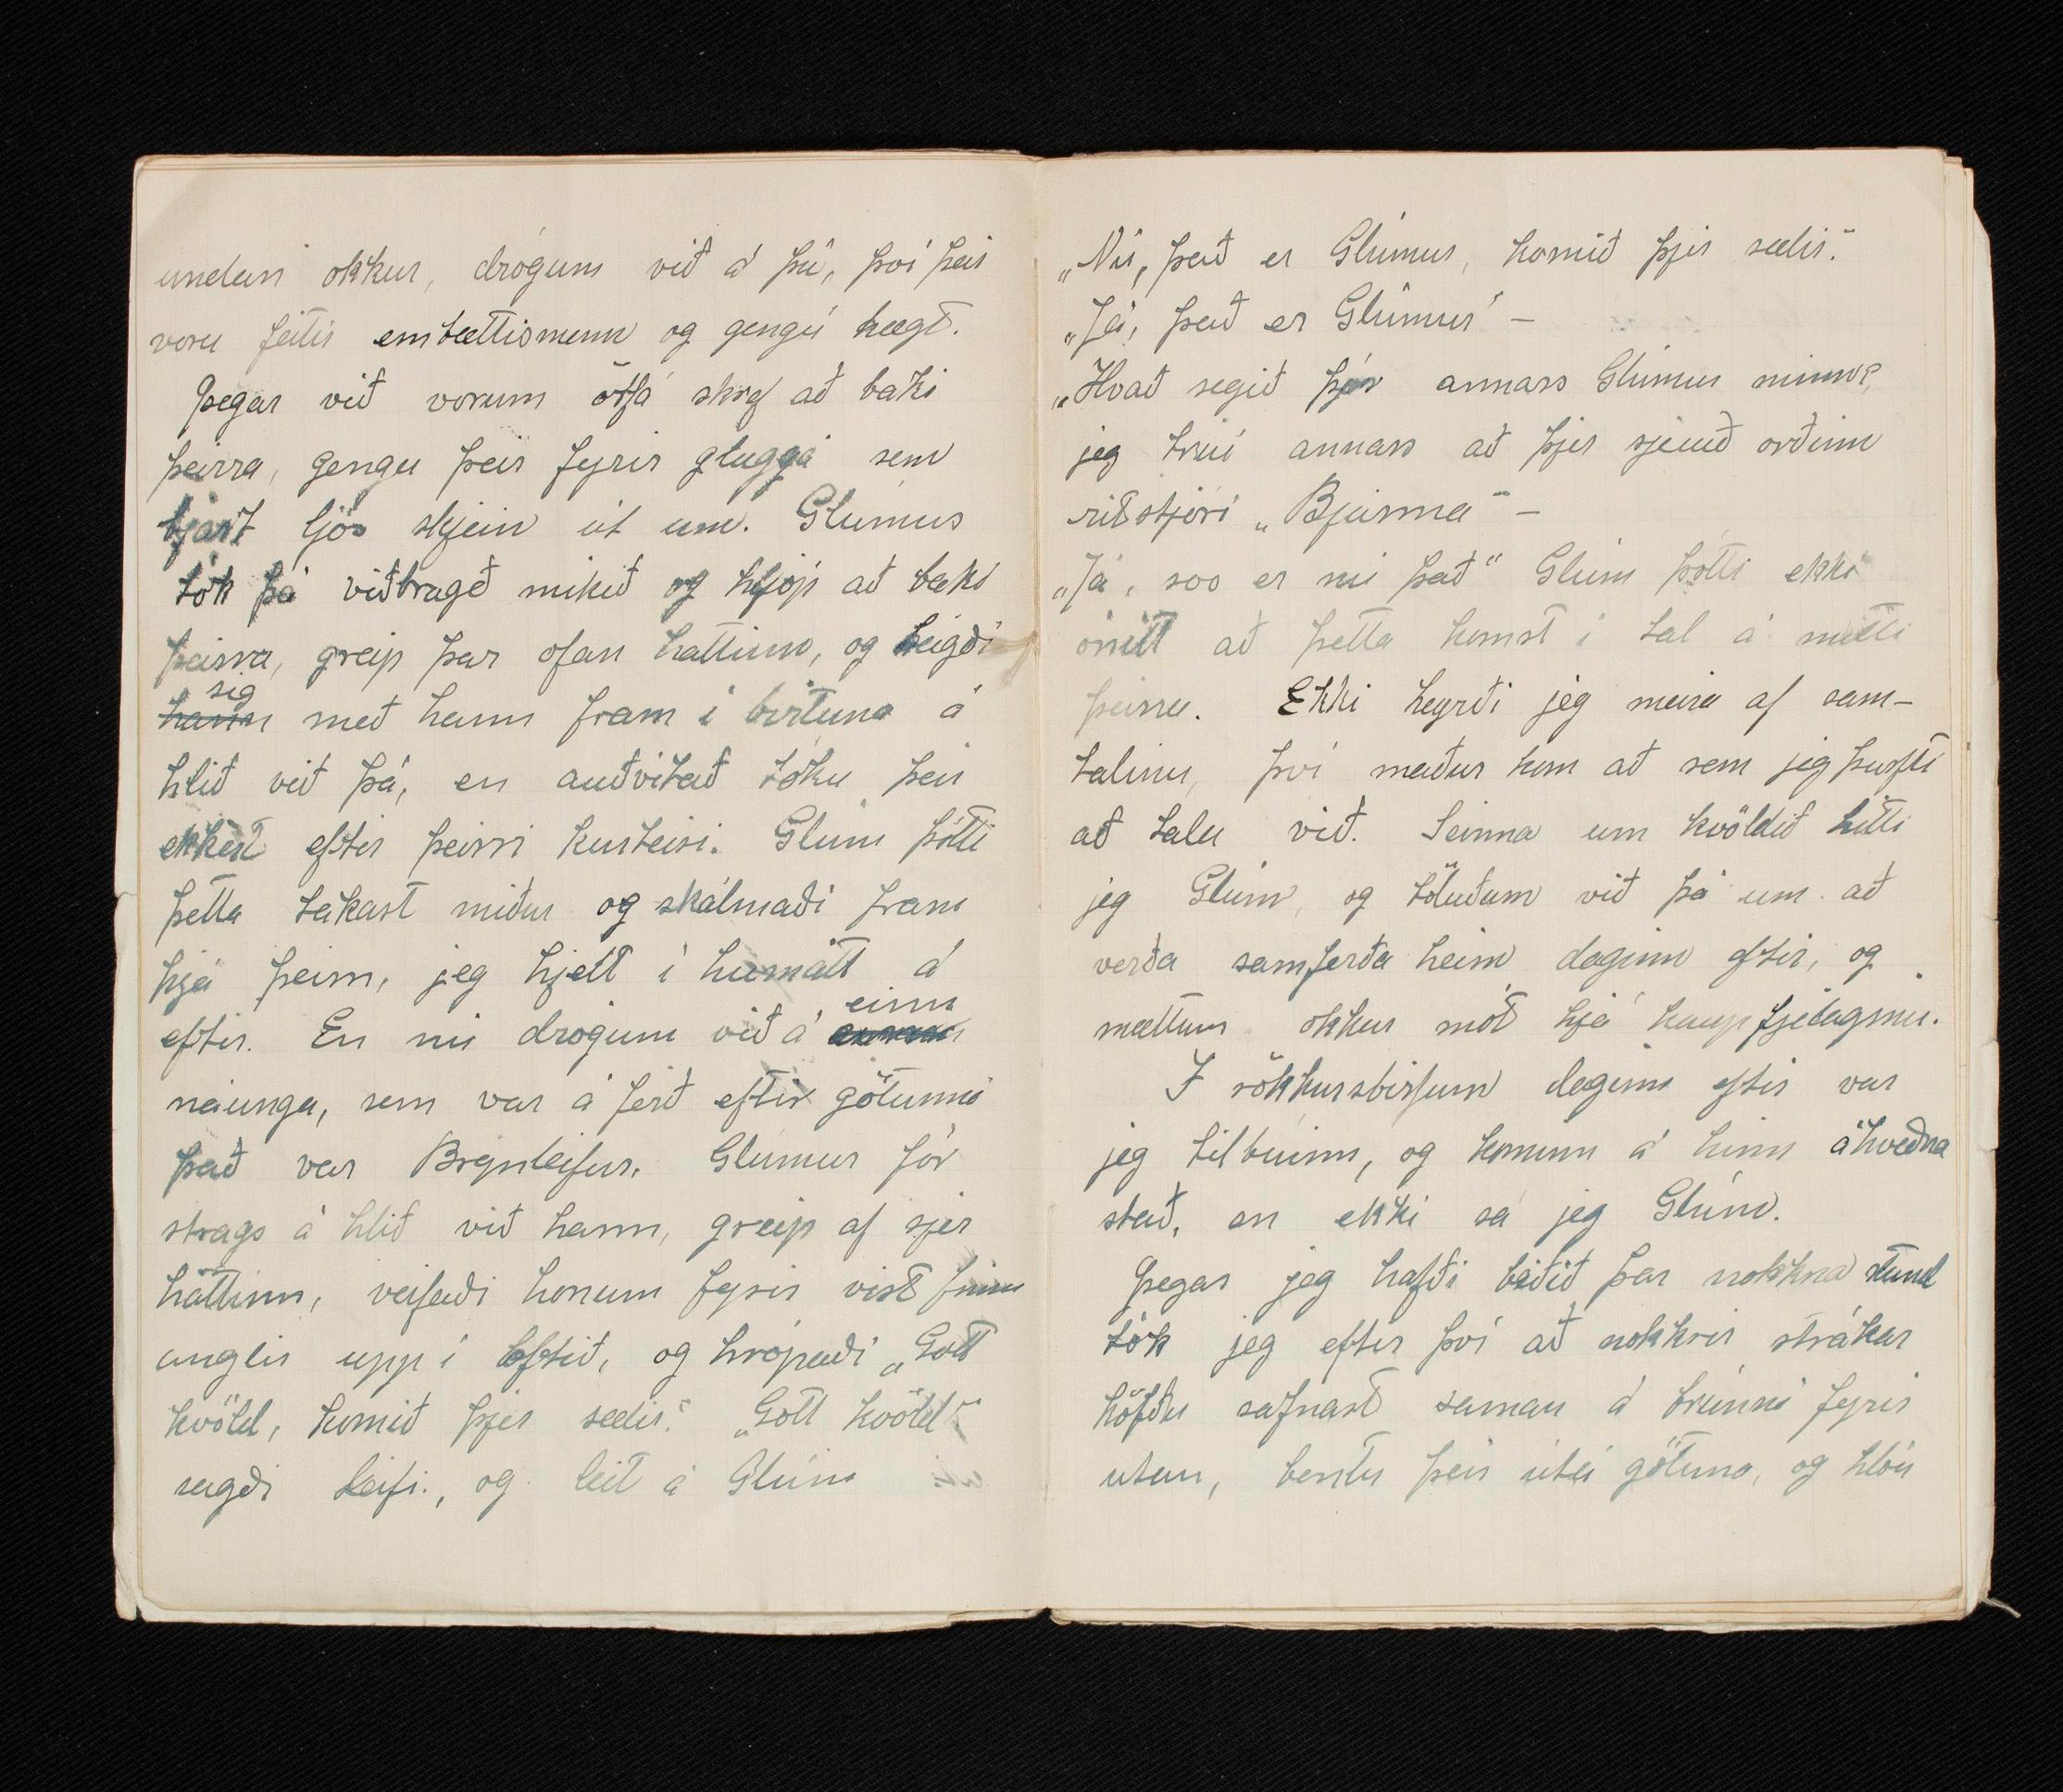 undan okkur, drógum við á þá, því þeir
voru feitir embættismenn og gengu hægt.
Þegar við vorum örfá skref að baki
þeirra, gengu þeir fyrir glugga sem
bjart ljós skein út um. Glúmus
tók þá viðbragð mikið og hljóp að baki
þeirra, greip þar ofan hattinn, og beigði
sig
hann með hann fram í birtuna á
hlið við þá, en auðvitað tóku þeir
ekkert eftir þeirri kurteisi. Glúm þótti
þetta takast miður og skálmaði fram
hjá þeim, jeg hjelt í humátt á
eftir. En nú drógum við á einn
náunga, sem var á ferð eftir götunni
það var Brynleifur. Glúmur fór
strags á hlið við hann, greip af sjer
hattinn, veifaði honum fyrir vist fimm
anglir upp í loftið, og hrópaði „Gott
kvöld, komið þjer sælir." „Gott kvöld"
sagði Leifi., og leit á Glúm
„Nú, það er Glúmur, komið þjer sælir."
„Já, það er Glúmur" –
„Hvað segið þjer annars Glúmur minn?
jeg trúi annars að þjer sjeuð orðinn
ritstjóri „Bjarma" –
„Já, svo er nú það" Glúm þótti ekki
ónítt að þetta komst í tal á milli
þeirra. Ekki heyrði jeg meira af sam-
talinu, því maður kom að sem jeg þurfti
að tala við. Seinna um kvöldið hitti
jeg Glúm, og töluðum við þá um að
verða samferða heim daginn eftir, og
mættum okkur mót hjá kaupfjelaginu.
Í rökkursbirjun daginn eftir var
jeg tilbúinn, og kominn á hinn ákveðna
stað, en ekki sá jeg Glúm.
Þegar jeg hafði beðið þar nokkra stund
tók jeg eftir því að nokkrir strákar
höfðu safnast saman á brúnni fyrir
utan, bentu þeir útá götuna, og hlóu